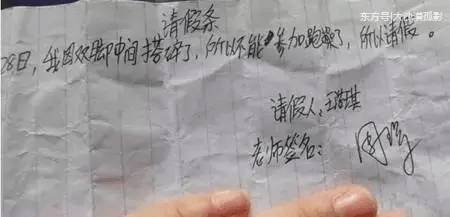 东方号
请假条
28日，我因双脚中间搭碎了，所以不能参加跑操了，所以请假。
请假人：王
老师签名：